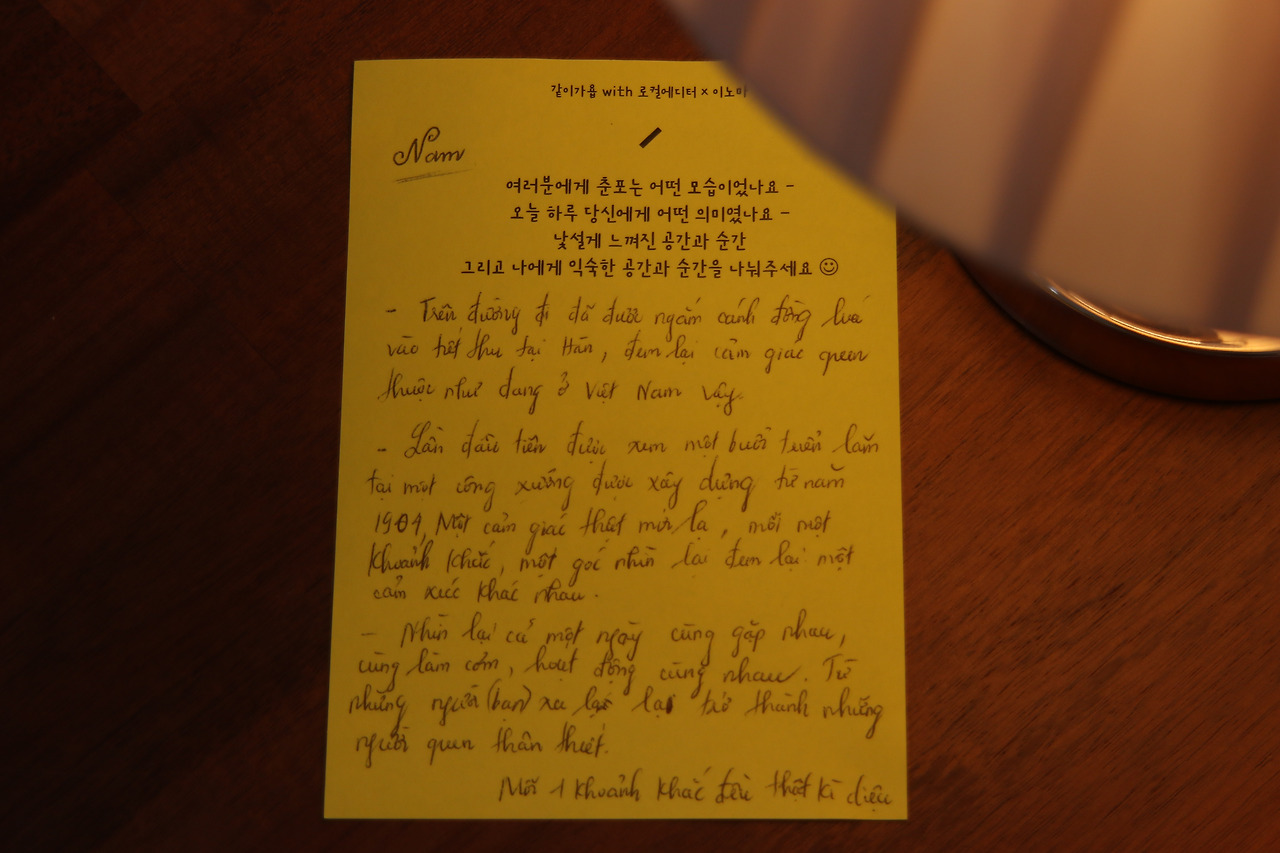 같이가욥 with 로컬에디터 x 이노마
Nam
여러분에게 춘포는 어떤 모습이었나요 -
오늘 하루 당신에게 어떤 의미였나요 -
낯설게 느껴진 공간과 순간
그리고 나에게 익숙한 공간과 순간을 나눠주세요 ☺
- Trên đường đi đã được ngắm cánh đồng lúa
vào tiết thu tại Hàn, đem lại cảm giác quen
thuộc như đang ở Việt Nam vậy.
- Lần đầu tiên được xem một buổi triển lãm
tại một công xưởng được xây dựng từ năm
1904, Một cảm giác thật mới lạ, mỗi một
khoảnh khắc, một góc nhìn lại đem lại một
cảm xúc khác nhau.
- Nhìn lại cả một ngày cùng gặp nhau,
cùng làm cơm, hoạt động cùng nhau. Từ
những người (bạn) xa lạ lại trở thành những
người quen thân thiết.
Mỗi 1 khoảnh khắc đều thật kì diệu